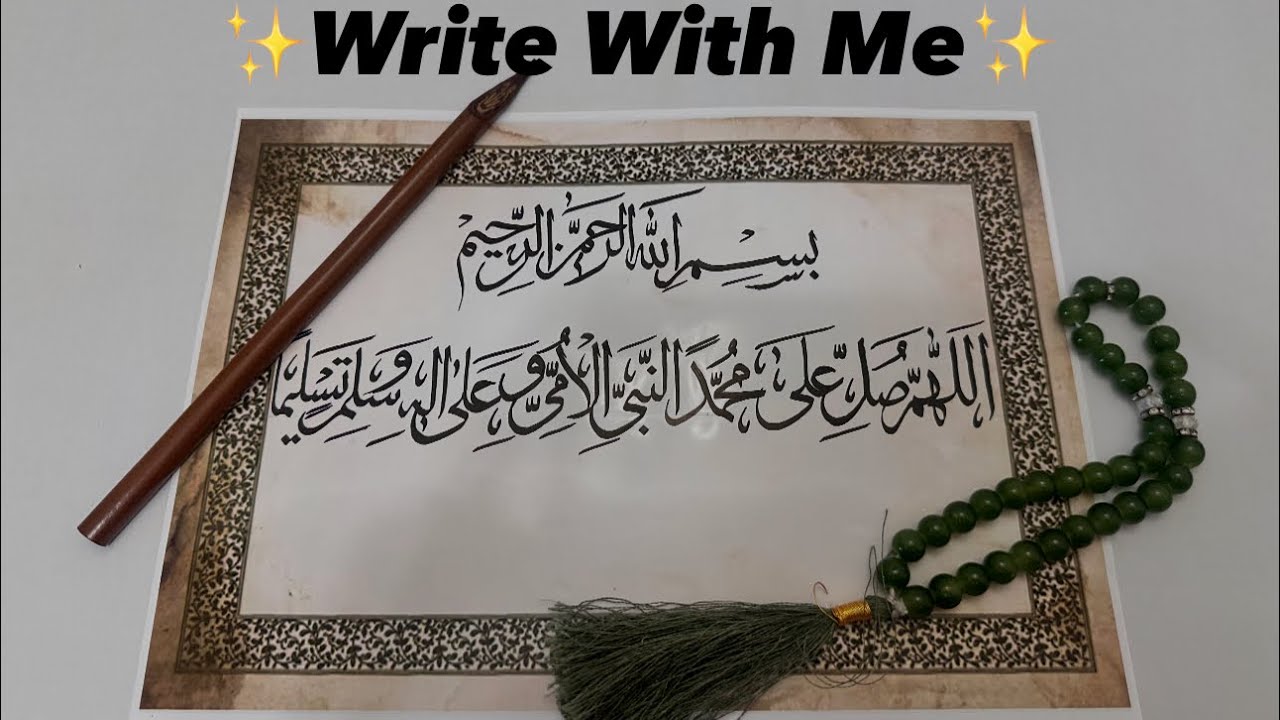 ✨Write With Me✨
بِسْمِ اللهِ الرَّحْمَنِ الرَّحِيمِ
اَللّٰهُمَّ صَلِّ عَلَى مُحَمَّدٍ النَّبِيِّ الْأُمِّيِّ وَعَلَى آلِهِ وَسَلِّمْ تَسْلِيمًا